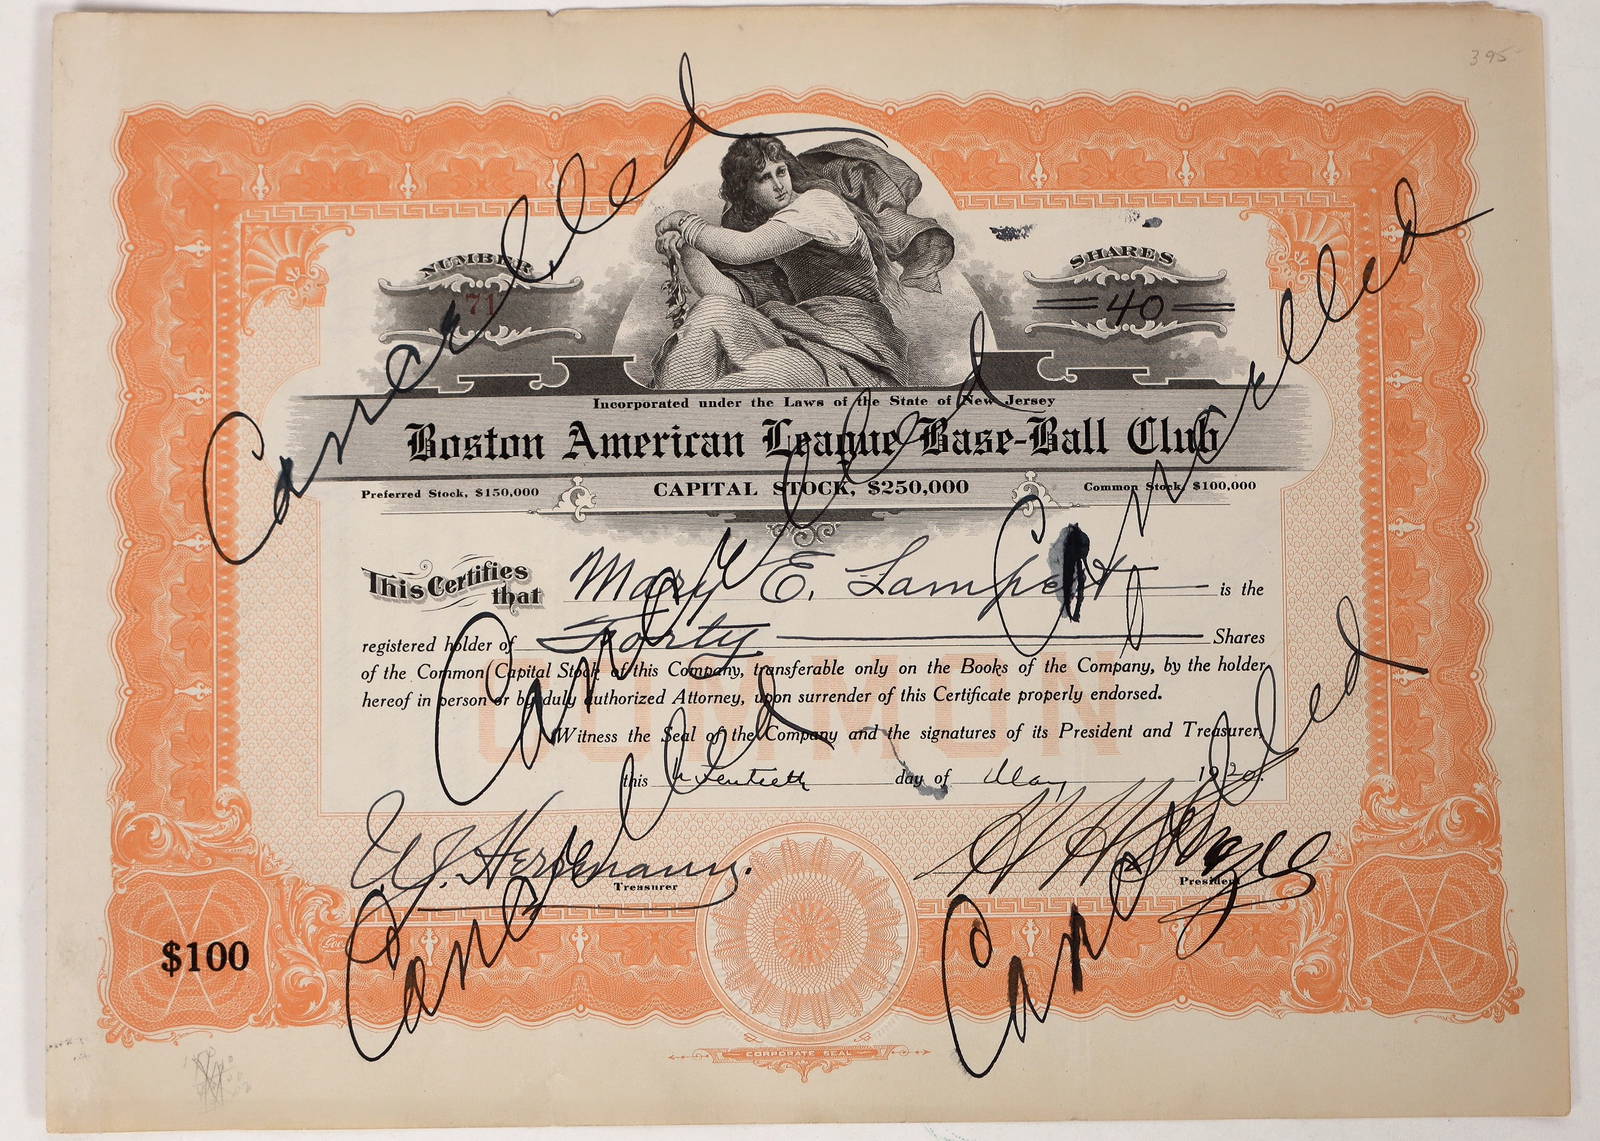 395
Cancelled
Cancelled
NUMBER
71
SHARES
40
Incorporated under the Laws of the State of New Jersey
Boston American League Base-Ball Club
Preferred Stock, $150,000
CAPITAL STOCK, $250,000
Common Stock, $100,000
Cancelled
This Certifies that Mary E. Lampert is the
registered holder of Forty Shares
of the Common Capital Stock of this Company, transferable only on the Books of the Company, by the holder
hereof in person or by duly authorized Attorney, upon surrender of this Certificate properly endorsed.
COMMON
Witness the Seal of the Company and the signatures of its President and Treasurer,
this twentieth day of May 1920.
Cancelled
Cancelled
Treasurer
H H Frazee
President
$100
CORPORATE SEAL